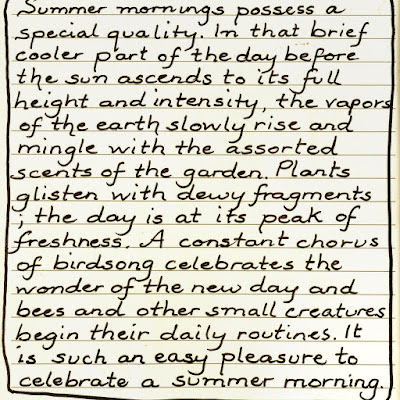 Summer mornings possess a
special quality. In that brief
cooler part of the day before
the sun ascends to its full
height and intensity, the vapors
of the earth slowly rise and
mingle with the assorted
scents of the garden. Plants
glisten with dewy fragments
; the day is at its peak of
freshness. A constant chorus
of birdsong celebrates the
wonder of the new day and
bees and other small creatures
begin their daily routines. It
is such an easy pleasure to
celebrate a summer morning.